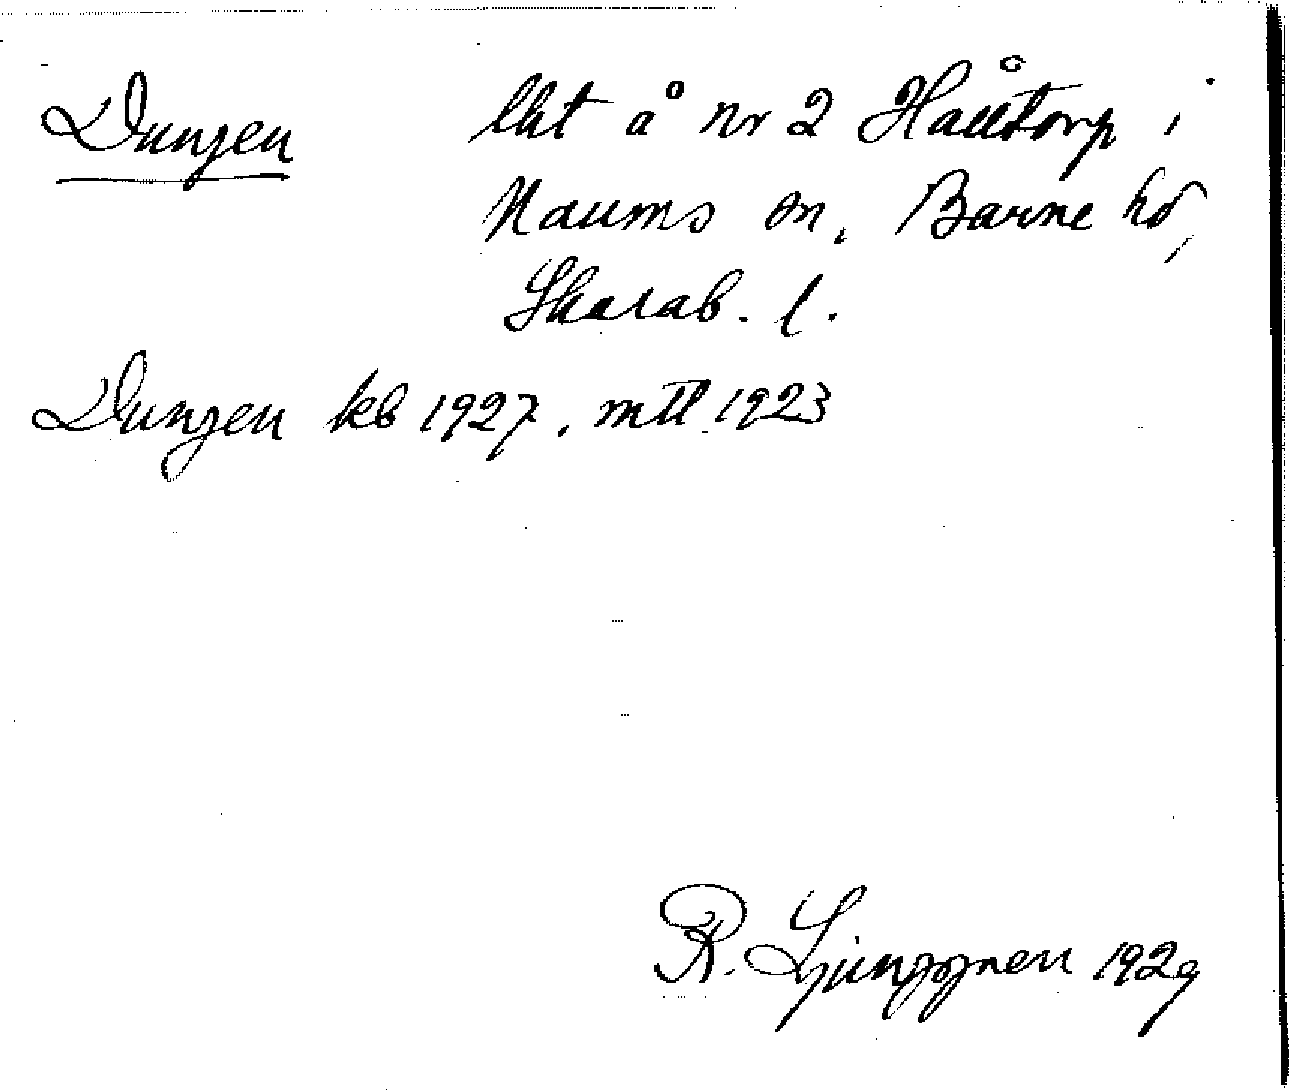 Dungen lht å nr 2 Hålltorp i
Naums sn, Barne hd,
Skarab. l.
Dungen kb 1927, mtl 1923
R. Ljunggren 1929